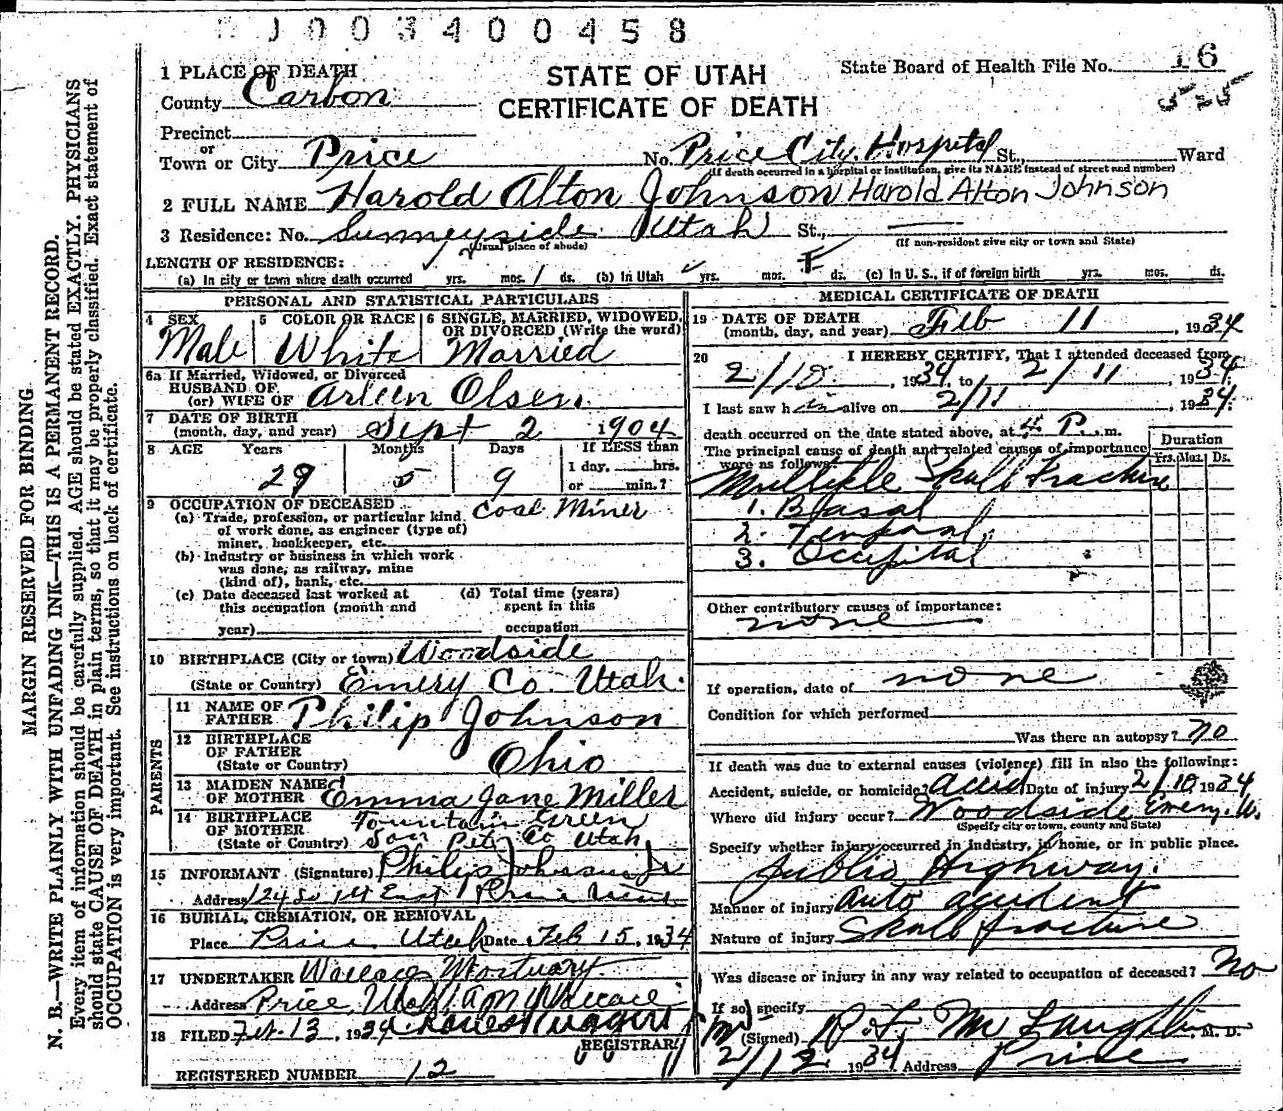 J003400458
1 PLACE OF DEATH
STATE OF UTAH
State Board of Health File No. 16
County Carbon
CERTIFICATE OF DEATH
525
Precinct
or
Town or City Price No. Price City Hospital St., Ward
(If death occurred in a hospital or institution, give its NAME instead of street and number)
2 FULL NAME Harold Alton Johnson Harold Alton Johnson
3 Residence: No. Sunnyside Utah St.,
(Usual place of abode) (If non-resident give city or town and State)
LENGTH OF RESIDENCE:
(a) In city or town where death occurred yrs. mos. 1 ds. (b) In Utah yrs. mos. ds. (c) In U. S., if of foreign birth yrs. mos. ds.
PERSONAL AND STATISTICAL PARTICULARS
4 SEX Male
5 COLOR OR RACE White
6 SINGLE, MARRIED, WIDOWED, OR DIVORCED (Write the word) Married
6a If Married, Widowed, or Divorced
HUSBAND OF
(or) WIFE OF Arleen Olsen
7 DATE OF BIRTH
(month, day, and year) Sept 2 1904
8 AGE Years Months Days If LESS than
1 day, hrs.
29 5 9 or min.?
9 OCCUPATION OF DECEASED
(a) Trade, profession, or particular kind Coal Miner
of work done, as engineer (type of)
miner, bookkeeper, etc.
(b) Industry or business in which work
was done, as railway, mine
(kind of), bank, etc.
(c) Date deceased last worked at (d) Total time (years)
this occupation (month and spent in this
year) occupation
10 BIRTHPLACE (City or town) Woodside
(State or Country) Emery Co. Utah.
PARENTS
11 NAME OF
FATHER Philip Johnson
12 BIRTHPLACE
OF FATHER
(State or Country) Ohio
13 MAIDEN NAME
OF MOTHER Emma Jane Miller
14 BIRTHPLACE Fountain Green
OF MOTHER
(State or Country) San Pete Co Utah
15 INFORMANT (Signature) Philip Johnson Jr
Address 124 So 1st East Price Utah
16 BURIAL, CREMATION, OR REMOVAL
Place Price Utah Date Feb 15, 1934
17 UNDERTAKER Wallace Mortuary
Address Price Utah
18 FILED Feb 13, 1934
REGISTRAR
REGISTERED NUMBER 12
MEDICAL CERTIFICATE OF DEATH
19 DATE OF DEATH
(month, day, and year) Feb 11, 1934
20 I HEREBY CERTIFY, That I attended deceased from
2/10, 1934, to 2/11, 1934
I last saw him alive on 2/11, 1934;
death occurred on the date stated above, at 4 P. m.
The principal cause of death and related causes of importance
were as follows:
Duration
Yrs. Mos. Ds.
Multiple Skull Fracture
1. Basal
2. Temporal
3. Occipital
Other contributory causes of importance:
none
If operation, date of none
Condition for which performed
Was there an autopsy? no
If death was due to external causes (violence) fill in also the following:
Accident, suicide, or homicide? accid Date of injury 2/10 1934
Where did injury occur? Woodside Emery. U.
(Specify city or town, county and State)
Specify whether injury occurred in industry, in home, or in public place.
Public Highway.
Manner of injury auto accident
Nature of injury Skull fracture
Was disease or injury in any way related to occupation of deceased? No
If so, specify
(Signed) R. F. McLaughlin, M. D.
2/12 1934 Address Price
MARGIN RESERVED FOR BINDING
N. B.—WRITE PLAINLY WITH UNFADING INK—THIS IS A PERMANENT RECORD.
Every item of information should be carefully supplied. AGE should be stated EXACTLY. PHYSICIANS
should state CAUSE OF DEATH in plain terms, so that it may be properly classified. Exact statement of
OCCUPATION is very important. See instructions on back of certificate.